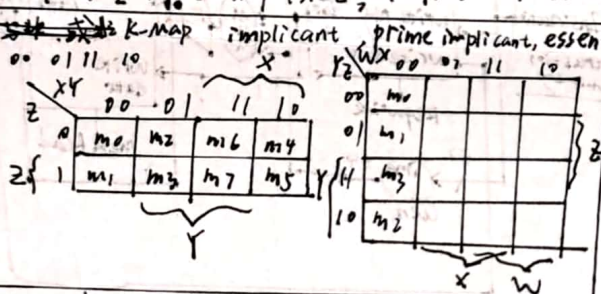 K-map implicant prime implicant, essen
00 01 11 10
XY
Z 00 01 11 10
X
0 m0 m2 m6 m4
Z 1 m1 m3 m7 m5
Y
WX
YZ 00 01 11 10
00 m0
01 m1
Z
Y 11 m3
10 m2
X W